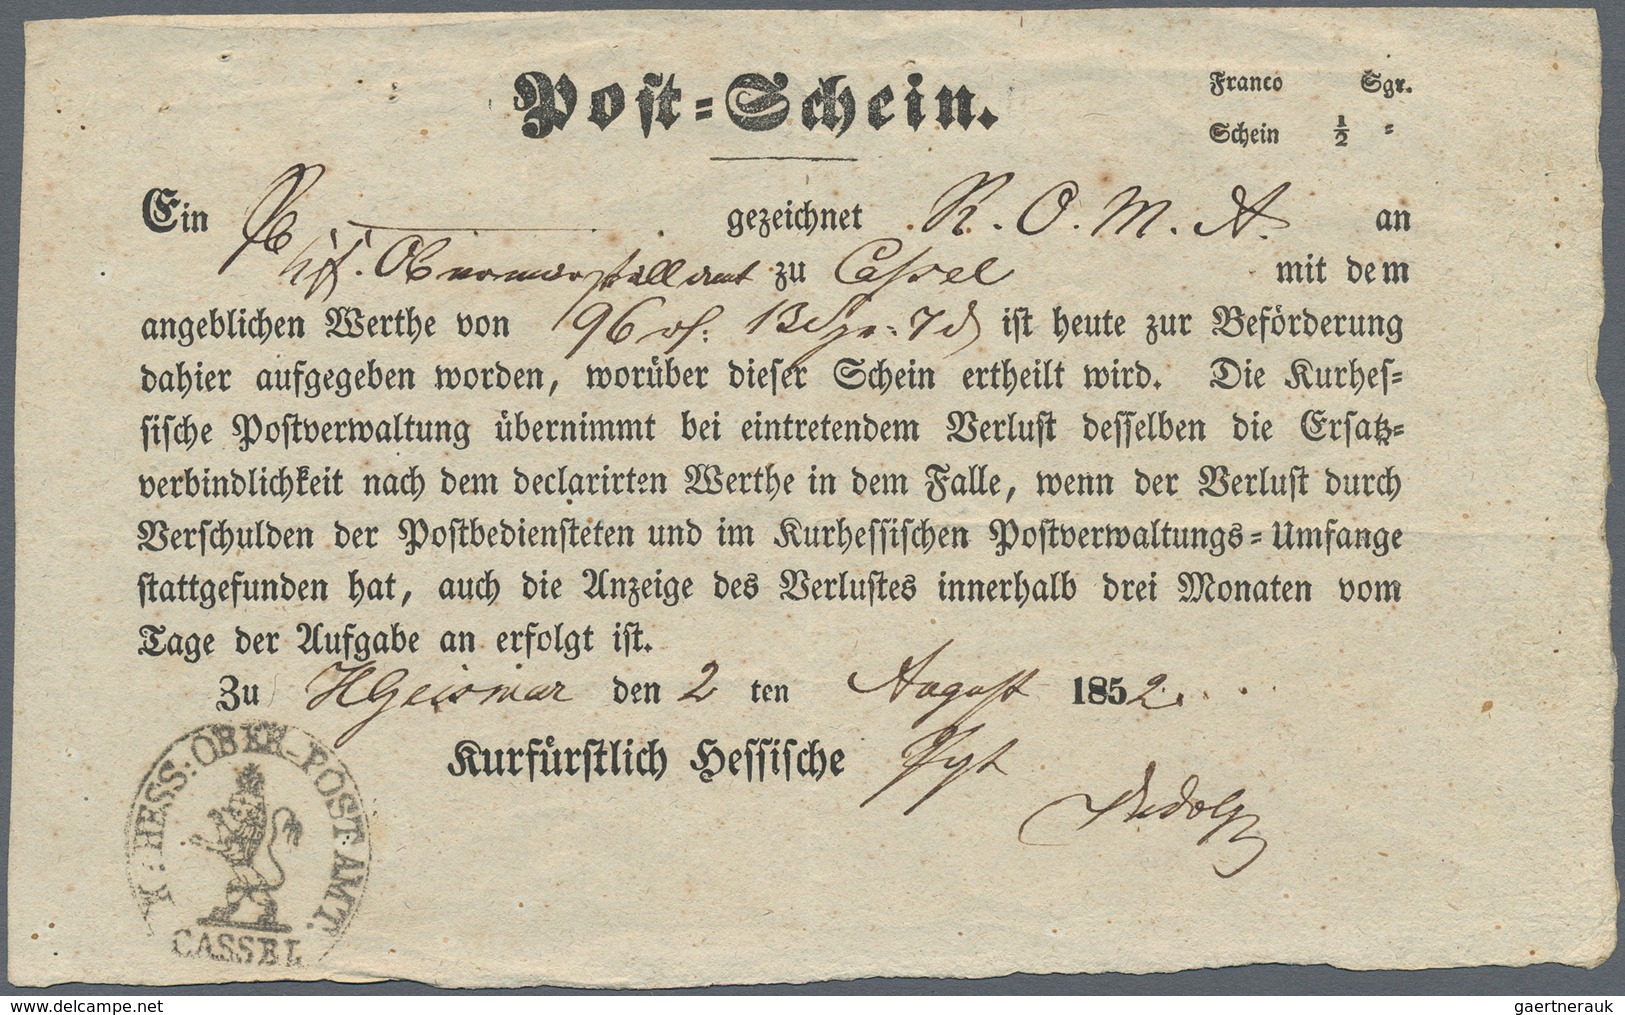 Post-Schein.
Franco Sgr.
Schein ½ "
Ein gezeichnet R. O. M. A. an
Obermarstallamt zu Cassel mit dem
angeblichen Werthe von 96 rf. 13 Sgr. 7 d ist heute zur Beförderung
dahier aufgegeben worden, worüber dieser Schein ertheilt wird. Die Kurhes-
sische Postverwaltung übernimmt bei eintretendem Verlust desselben die Ersatz-
verbindlichkeit nach dem declarirten Werthe in dem Falle, wenn der Verlust durch
Verschulden der Postbediensteten und im Kurhessischen Postverwaltungs-Umfange
stattgefunden hat, auch die Anzeige des Verlustes innerhalb drei Monaten vom
Tage der Aufgabe an erfolgt ist.
Zu HGeismar den 2 ten August 1852.
Kurfürstlich Hessische
K: HESS: OBER-POST-AMT.
CASSEL
www.delcampe.net
gaertnerauk